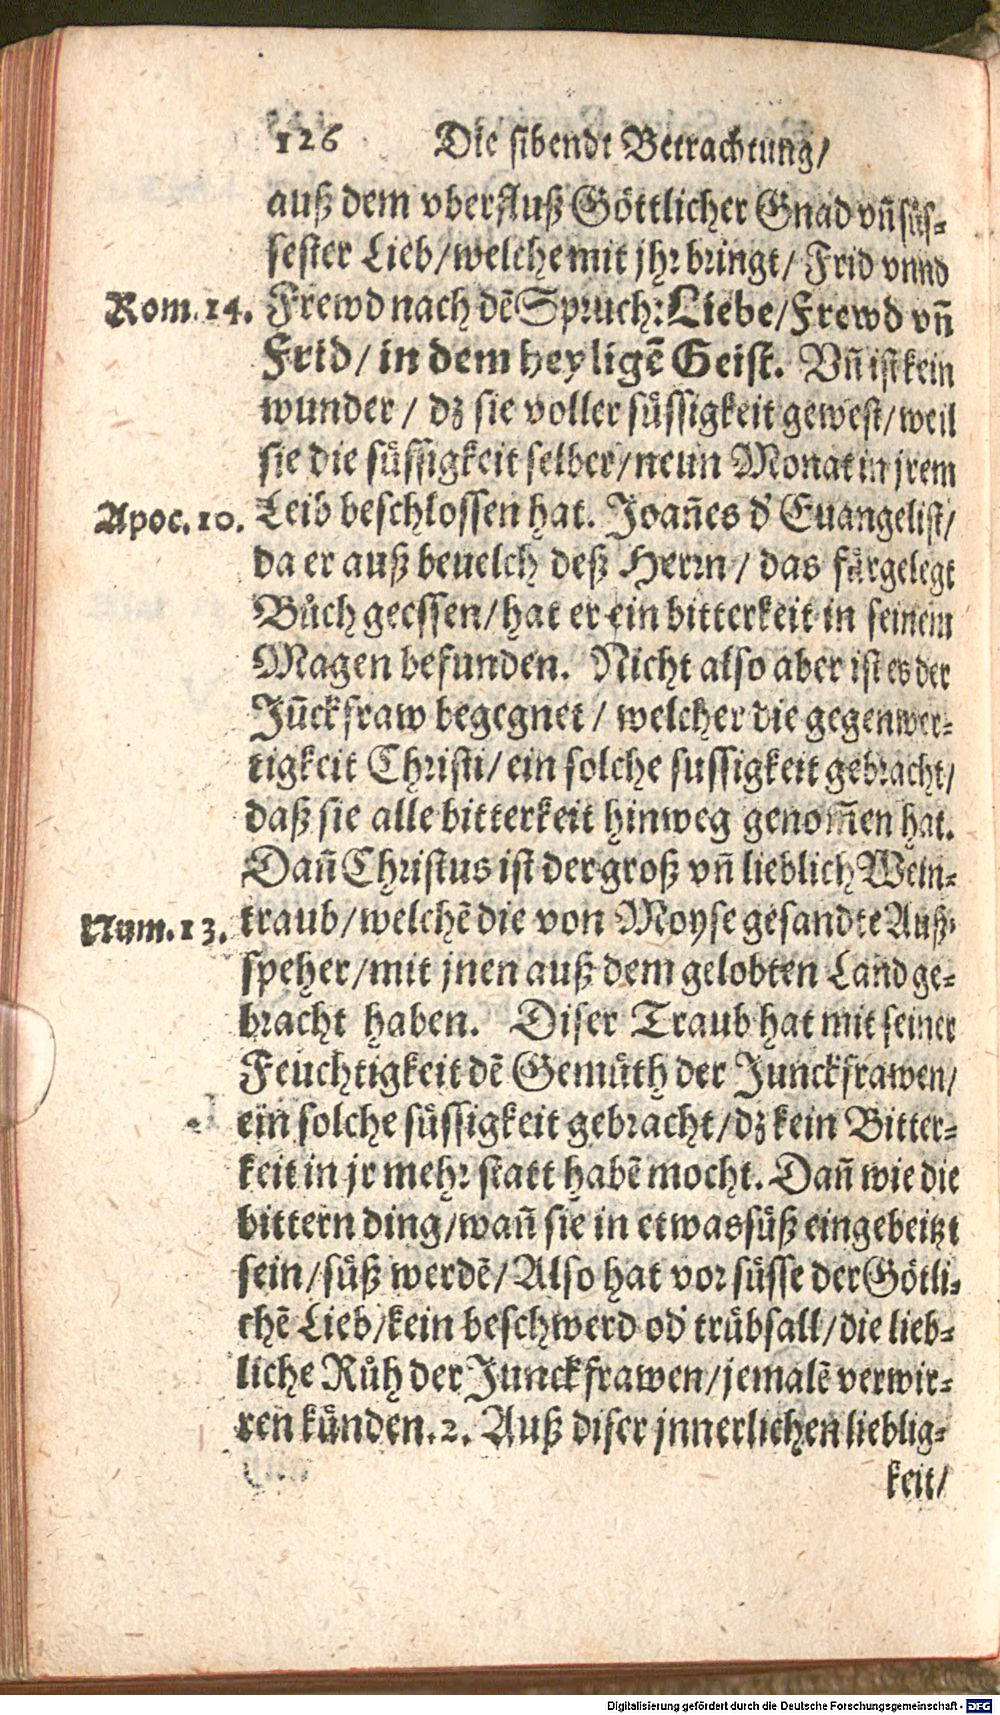 126 Die sibendt Betrachtung/
auß dem vberfluß Göttlicher Gnad vn̄ süs-
sester Lieb/welche mit jhr bringt/ Frid vnnd
Rom. 14. Frewd nach dẽ Spruch: Liebe/Frewd vn̄
Frid/ in dem heyligẽ Geist. Vn̄ ist kein
wunder/ dz sie voller süssigkeit gewest/weil
sie die süssigkeit selber/neun Monat in jrem
Apoc. 10. Leib beschlossen hat. Joan̄es d' Euangelist/
da er auß beuelch deß Herrn/ das fürgelegt
Bůch geessen/hat er ein bitterkeit in seinem
Magen befunden. Nicht also aber ist es der
Jũckfraw begegnet/ welcher die gegenwer-
tigkeit Christi/ein solche sussigkeit gebracht/
daß sie alle bitterkeit hinweg genom̄en hat.
Dan̄ Christus ist der groß vn̄ lieblich Wein-
Num. 13. traub/welchẽ die von Moyse gesandte Auß-
speher/mit jnen auß dem gelobten Land ge-
bracht haben. Diser Traub hat mit seiner
Feuchtigkeit dẽ Gemüth der Junckfrawen/
ein solche süssigkeit gebracht/dz kein Bitter-
keit in jr mehr statt habẽ mocht. Dan̄ wie die
bittern ding/wan̄ sie in etwas süß eingebeitzt
sein/süß werdẽ/Also hat vor süsse der Götli-
chẽ Lieb/kein beschwerd od' trübsall/die lieb-
liche Růh der Junckfrawen/jemalẽ verwir-
ren künden. 2. Auß diser jnnerlichen lieblig-
keit/
Digitalisierung gefördert durch die Deutsche Forschungsgemeinschaft - DFG